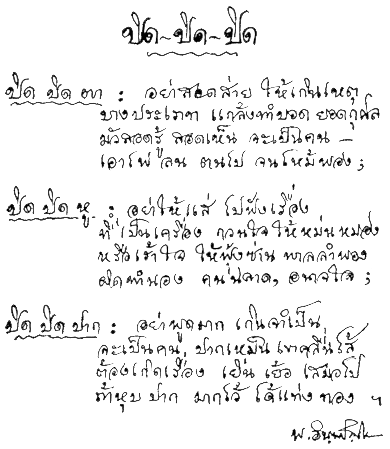 ปิด-ปิด-ปิด
ปิด ปิด ตา : อย่าสอดส่าย ให้เกินเหตุ
บางประเภท แกล้งทำบอด ยอดกุศล
มัวสอดรู้ สอดเห็น จะเป็นคน –
เอาไฟลน ตนไป จนไหม้พอง ;
ปิด ปิด หู : อย่าให้แส่ ไปฟังเรื่อง
ที่เป็นเครื่อง กวนใจ ให้หม่นหมอง
หรือเร้าใจ ให้ฟุ้งซ่าน พาลลำพอง
ผิดทำนอง คนฉลาด, อนาถใจ ;
ปิด ปิด ปาก : อย่าพูดมาก เกินจำเป็น
จะเป็นคน ปากเหม็น เขาคลื่นไส้
ต้องเกิดเรื่อง เยิ่นเย้อ เสมอไป
ถ้าหุบปาก มากไว้ ได้แท่งทอง ฯ